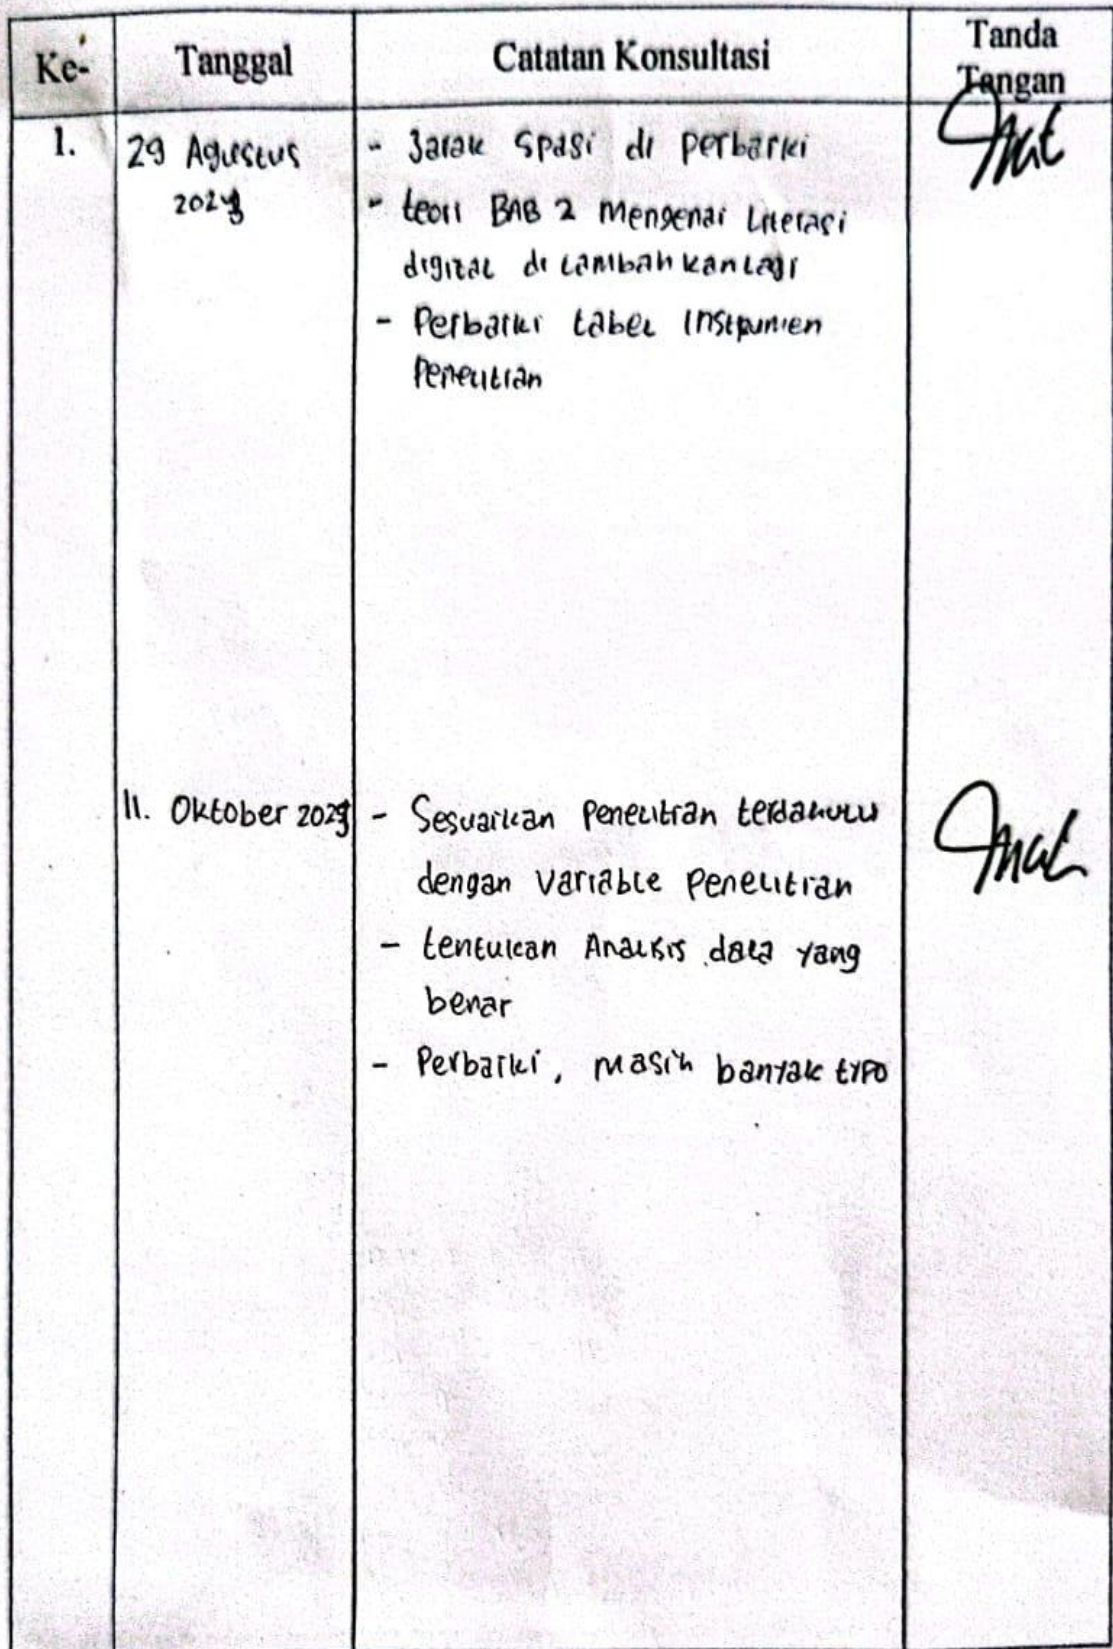 Ke- Tanggal Catatan Konsultasi Tanda
Tangan
1. 29 Agustus - Jarak Spasi di perbaiki
- teori BAB 2 Mengenai Literasi
digital di tambahkan lagi
- Perbaiki tabel Instrumen
Penelitian
11. Oktober - Sesuaikan Penelitian terdahulu
dengan Variable Penelitian
- tentukan Analisis data yang
benar
- Perbaiki, masih banyak typo